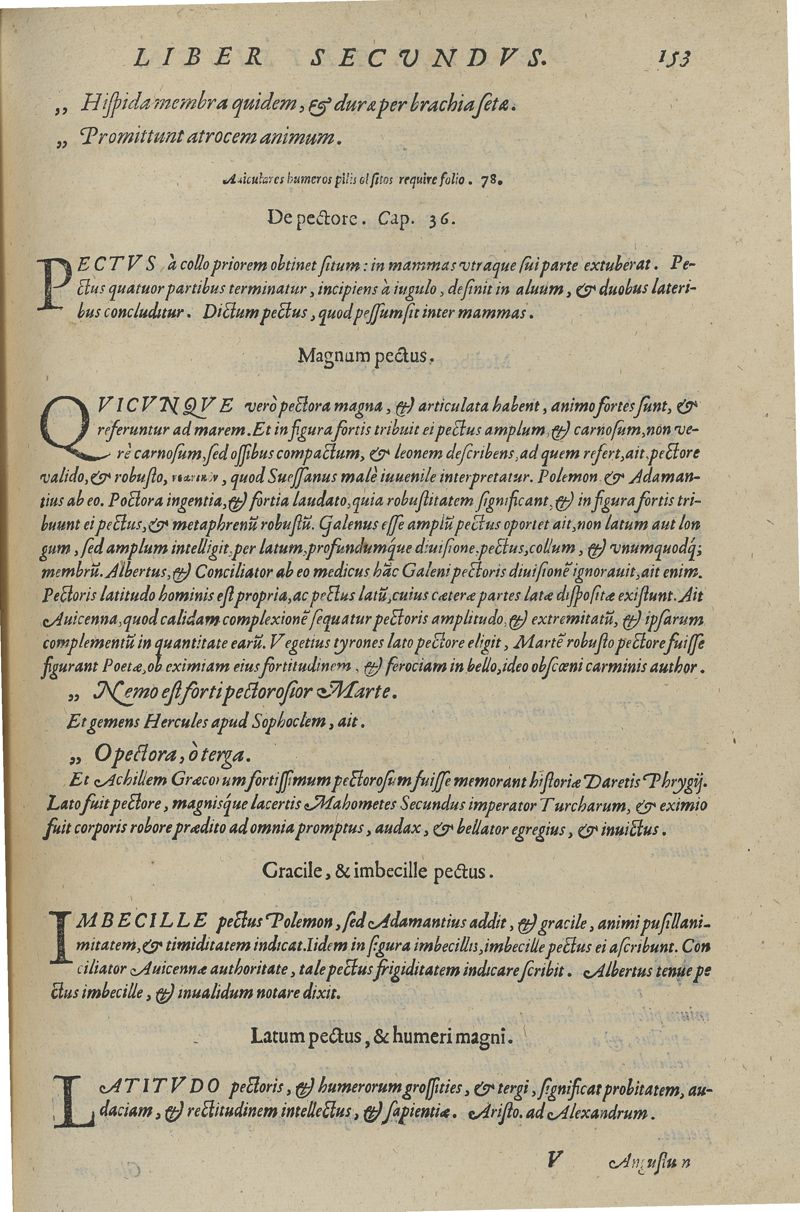 LIBER SECVNDVS. 153
„ Hiſpida membra quidem, & duræ per brachia ſetæ.
„ Promittunt atrocem animum.
Auiculares humeros pilis obſitos require folio. 78.
De pectore. Cap. 36.
PECTVS à collo priorem obtinet ſitum: in mammas vtraque ſui parte extuberat. Pe-
ctus quatuor partibus terminatur, incipiens à iugulo, deſinit in aluum, & duobus lateri-
bus concluditur. Dictum pectus, quod peſſum ſit inter mammas.
Magnum pectus.
QVICVNQVE verò pectora magna, & articulata habent, animo fortes ſunt, &
referuntur ad marem. Et in figura fortis tribuit ei pectus amplum, & carnoſum, non ve-
rè carnoſum, ſed oſſibus compactum, & leonem deſcribens, ad quem refert, ait, pectore
valido, & robuſto, quod Sueſſanus malè iuuenile interpretatur. Polemon & Adaman-
tius ab eo. Poctora ingentia, & fortia laudato, quia robuſtitatem ſignificant, & in figura fortis tri-
buunt ei pectus, & metaphrenũ robuſtũ. Galenus eſſe amplũ pectus oportet ait, non latum aut lon
gum, ſed amplum intelligit, per latum, profundumq́ue diuiſione, pectus, collum, & vnumquodq́;
membrũ. Albertus, & Conciliator ab eo medicus hãc Galeni pectoris diuiſionẽ ignorauit, ait enim.
Pectoris latitudo hominis eſt propria, ac pectus latũ, cuius cæteræ partes latæ diſpoſitæ exiſtunt. Ait
Auicenna, quod calidam complexionẽ ſequatur pectoris amplitudo, & extremitatũ, & ipſarum
complementũ in quantitate earũ. Vegetius tyrones lato pectore eligit, Martẽ robuſto pectore fuiſſe
figurant Poetæ, ob eximiam eius fortitudinem, & ferociam in bello, ideo obſcœni carminis author.
„ Nemo eſt forti pectoroſior Marte.
Et gemens Hercules apud Sophoclem, ait.
„ O pectora, ò terga.
Et Achillem Græcorum fortiſſimum pectoroſum fuiſſe memorant hiſtoriæ Daretis Phrygij.
Lato fuit pectore, magniſq́ue lacertis Mahometes Secundus imperator Turcharum, & eximio
fuit corporis robore prædito ad omnia promptus, audax, & bellator egregius, & inuictus.
Gracile, & imbecille pectus.
IMBECILLE pectus Polemon, ſed Adamantius addit, & gracile, animi puſillani-
mitatem, & timiditatem indicat. Iidem in figura imbecillis, imbecille pectus ei aſcribunt. Con
ciliator Auicennæ authoritate, tale pectus frigiditatem indicare ſcribit. Albertus tenue pe
ctus imbecille, & inualidum notare dixit.
Latum pectus, & humeri magni.
LATITVDO pectoris, & humerorum groſſities, & tergi, ſignificat probitatem, au-
daciam, & rectitudinem intellectus, & ſapientiæ. Ariſto. ad Alexandrum.
V Anguſtum